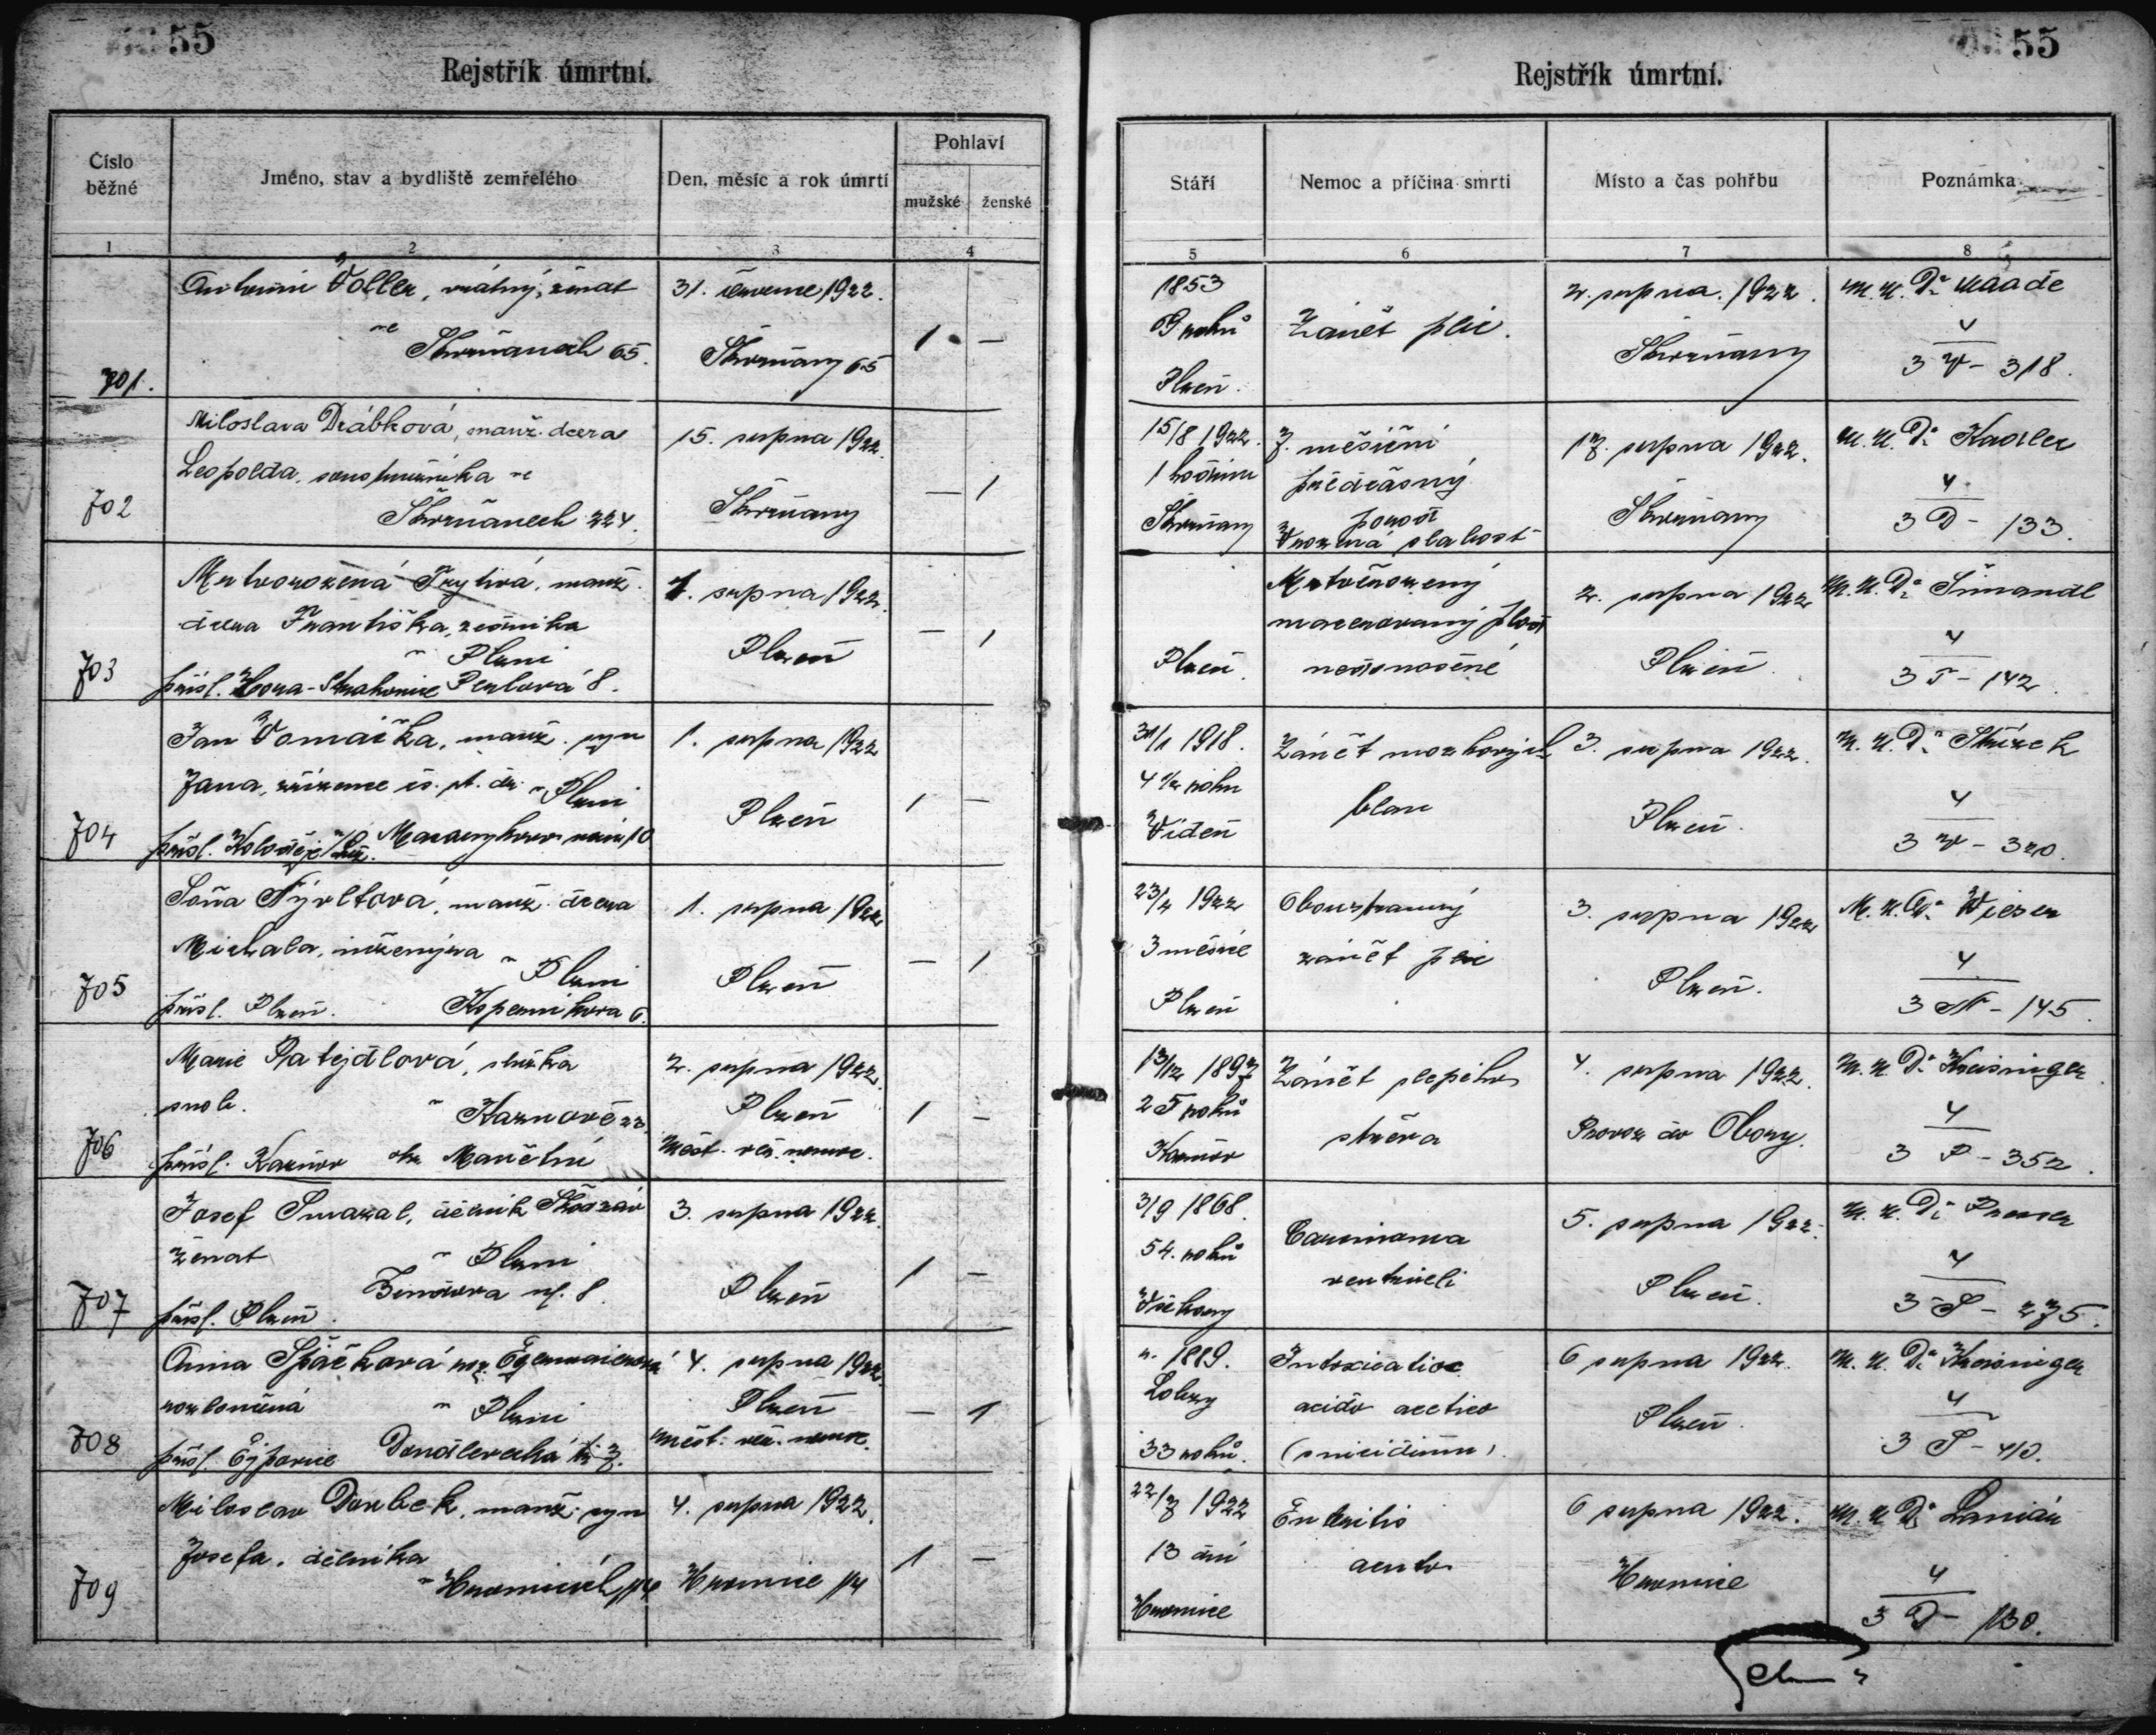 55
Rejstřík úmrtní.
Číslo běžné
Jméno, stav a bydliště zemřelého
Den, měsíc a rok úmrtí
Pohlaví
mužské
ženské
1
2
3
4
701.
Antonín Voller, vrátný, ženat
ve Škvrňanech 65.
31. července 1922.
Škvrňany 65
1
—
702
Miloslava Drábková, manž. dcera
Leopolda, soustružníka ve
Škvrňanech 224.
15. srpna 1922.
Škvrňany
—
1
703
Mrtvorozená Trytivá, manž.
dcera Františka, zedníka
v Plzni
přísl. Hora-Strakonice Perlová 8.
1. srpna 1922.
Plzeň
—
1
704
Jan Vomáčka, manž. syn
Jana, zřízence čs. st. dr. v Plzni
přísl. Koloděje n/Luž. Masarykovo nám 10
1. srpna 1922
Plzeň
1
—
705
Soňa Nývltová, manž. dcera
Michala, inženýra
v Plzni
přísl. Plzeň. Koperníkova 6.
1. srpna 1922
Plzeň
—
1
706
Marie Patejdlová, služka
svob. v Kaznově 23.
přísl. Kaznov okr. Manětín
2. srpna 1922.
Plzeň
Měst. veř. nemoc.
1
—
707
Josef Smazal, dělník Škod záv
ženat v Plzni
přísl. Plzeň.
ul. 8
3. srpna 1922.
Plzeň
1
—
708
Anna Špačková roz.
rozloučená v Plzni
přísl. Ejpovice
4. srpna 1922.
Plzeň
měst. veř. nemoc.
—
1
709
Miloslav Doubek, manž. syn
Josefa, dělníka
v Hromnicích 114
4. srpna 1922.
Hromnice 114
1
—
55
Rejstřík úmrtní.
Stáří
Nemoc a příčina smrti
Místo a čas pohřbu
Poznámka
5
6
7
8
1853
69 roků
Plzeň.
Zánět plic.
2. srpna. 1922.
Škvrňany
M. U. Dr.
4
3 V - 318.
15/8 1922.
1 hodinu
Škvrňany
7. měsíční
předčasný
porod
Vrozená slabost
17. srpna 1922.
Škvrňany
M. U. Dr. Kadlec
4
3 D - 133.
Plzeň.
Mrtvěrozený
macerovaný plod
nedonošené
2. srpna 1922
Plzeň.
M. U. Dr. Šimandl
4
3 T - 142.
31/1 1918.
4 1/2 roku
Vídeň
Zánět mozkových
blan
3. srpna 1922.
Plzeň.
M. U. Dr.
4
3 V - 320.
23/4 1922
3 měsíce
Plzeň
Oboustranný
zánět plic
3. srpna 1922
Plzeň.
M. U. Dr. Wieser
4
3 N - 145.
13/12 1897
25 roků
Kaznov
Zánět slepého
střeva
4. srpna 1922.
Převoz do Obory.
M. U. Dr. Kreisinger
4
3 P - 352.
3/9 1868.
54. roků
Všekary
Carcinoma
ventriculi
5. srpna 1922.
Plzeň.
M. U. Dr.
4
3 S - 275.
n. 1889.
Lobzy
33 roků.
Intoxicatio
acido acetico
(suicidium)
6 srpna 1922.
Plzeň.
M. U. Dr. Kreisinger
4
3 S - 410.
22/7 1922
13 dní
Hromnice
Enteritis
acuta
6 srpna 1922.
Hromnice
M. U. Dr.
4
3 D - 130.